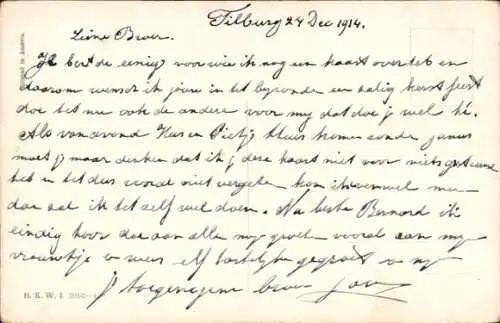 Tilburg 24 Dec 1914.
Lieve Broer.
Je bent de eenige voor wie ik nog een kaart over heb en
daarom wensch ik jou in het bijzonder een zalig kerstfeest
doe het nu ook de andere voor my dat doe j wel hé.
Als vanavond Kus en Pietj thuis komen zonder
moet j maar denken dat ik j deze kaart niet voor niets gestuurd
heb en het dus worde niet vergeten kom ik evenwel
dan zal ik het zelf wel doen. Nu beste Bernard ik
eindig hoor doe aan allen my groeten vooral aan my
vrouwtje en wees zelf hartelijk gegroet v my
j toegenegen broer
B. K. W. I.